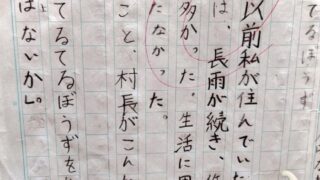 てるぼうず
以前私が住んでい
は、長雨が続き、
多かった。生活に
たなかった。
こと、村長がこん
てるてるぼうずを
はないか」。